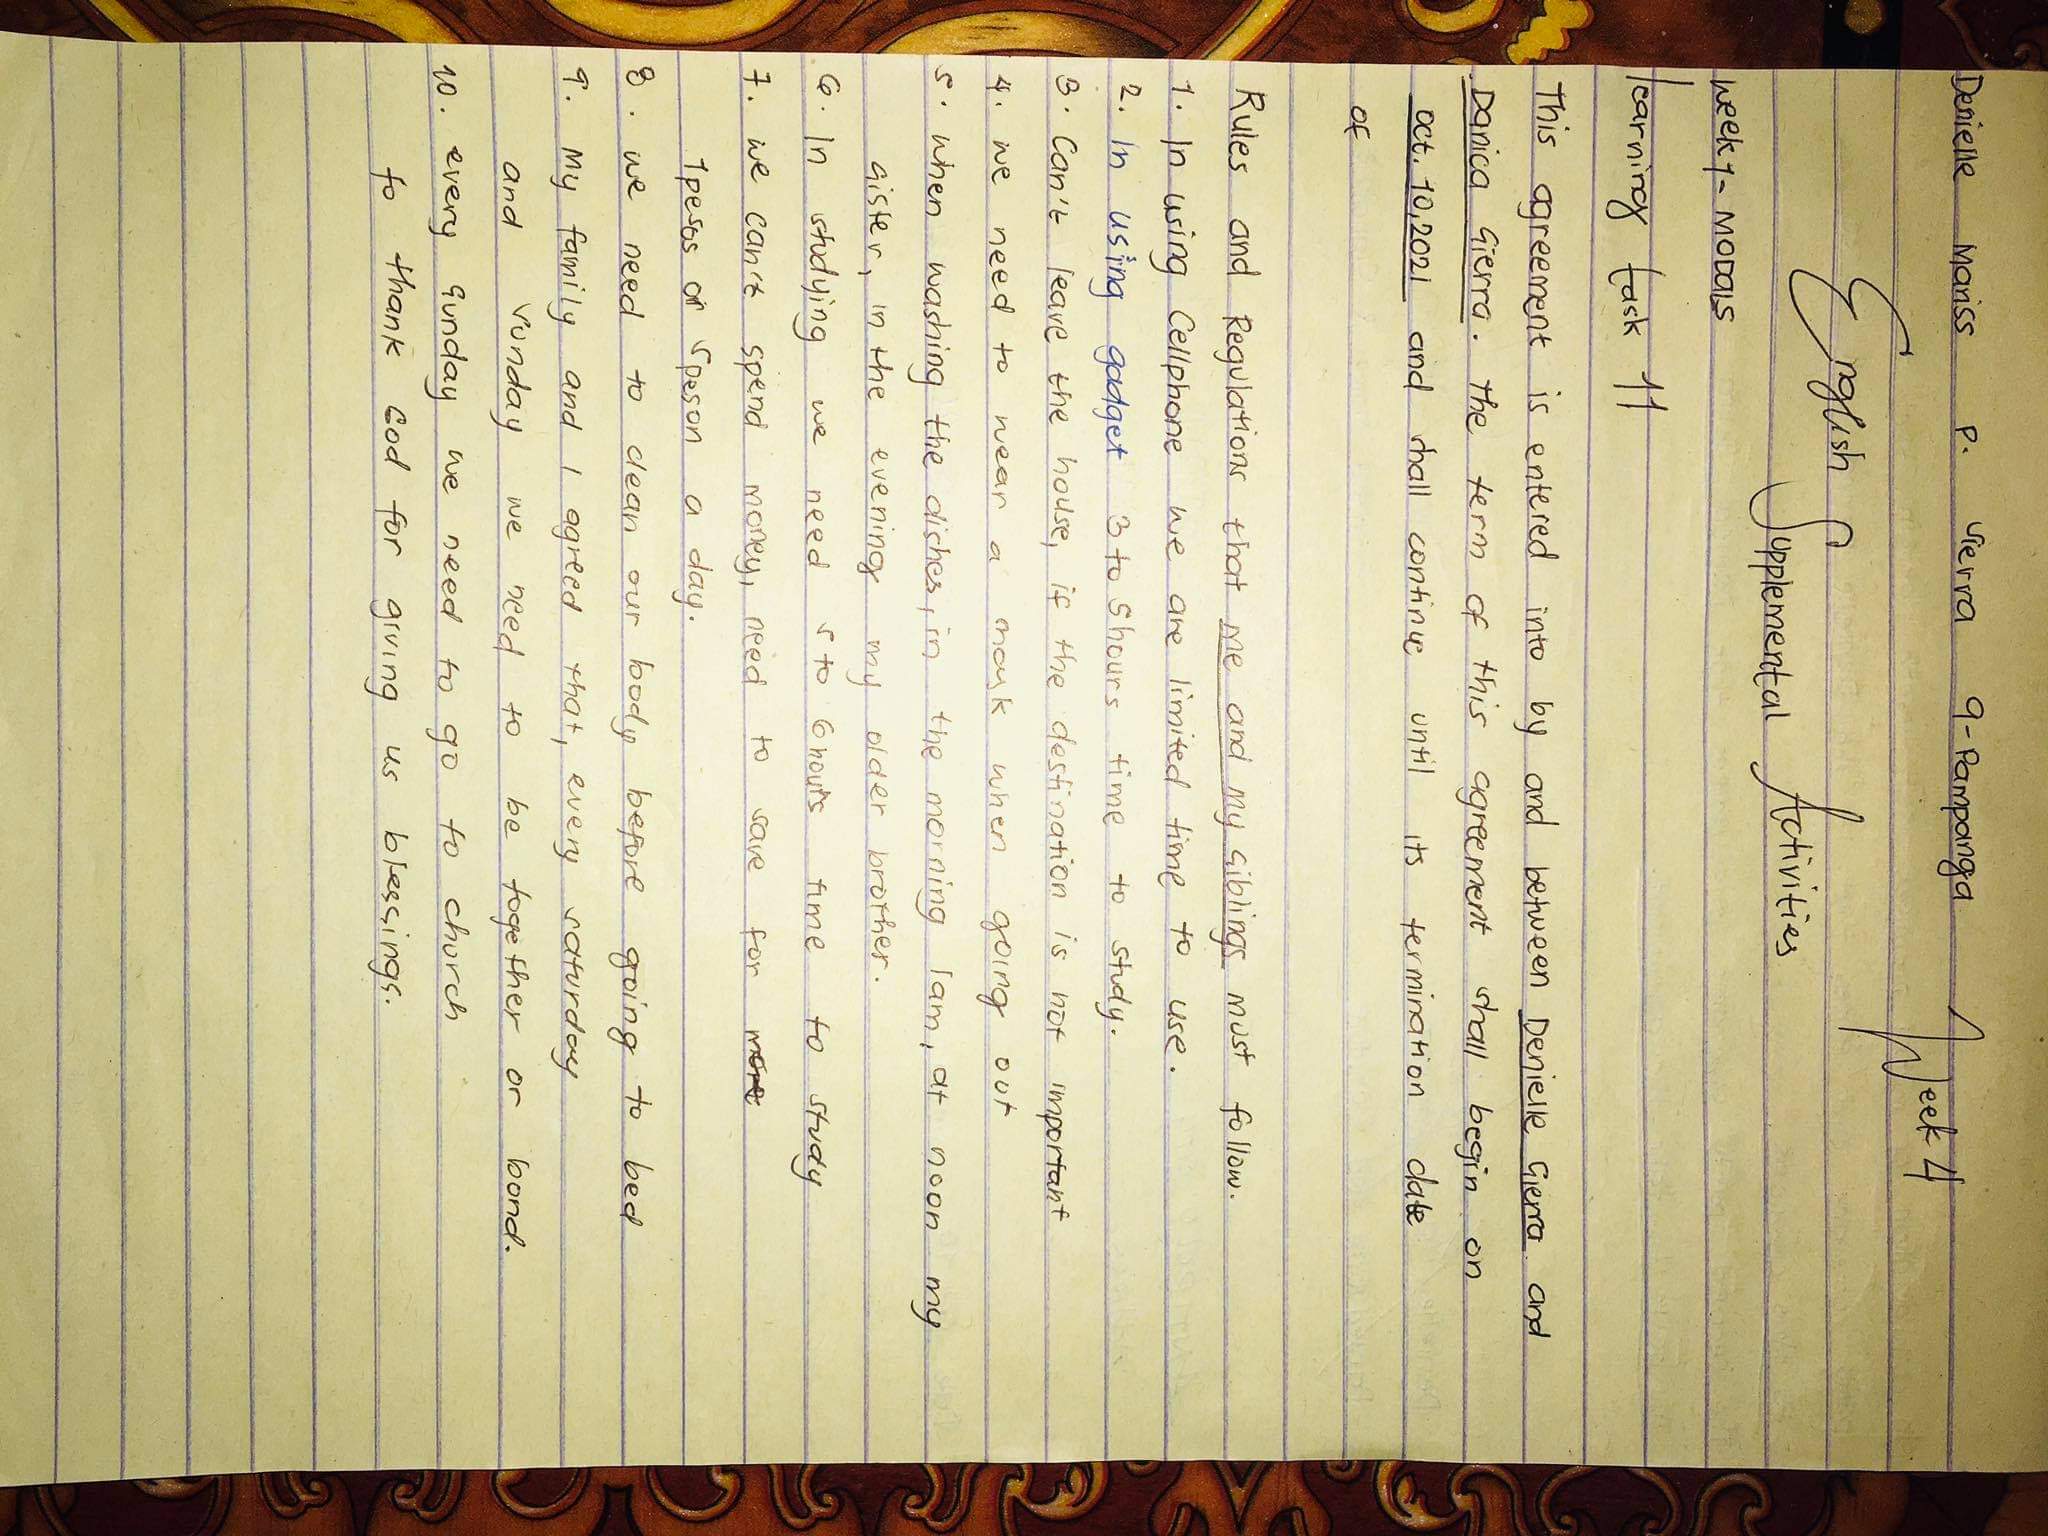 Denielle Mariss P. Sierra 9-Pampanga
Week 4
English
Supplemental Activities
Week 1- MODALS
Learning task 11
This agreement is entered into by and between Denielle Sierra and
Danica Sierra. The term of this agreement shall begin on
Oct. 10,2021 and shall continue until its termination date
of
Rules and Regulations that me and my siblings must follow.
1. In using Cellphone we are limited time to use.
2. In using gadget 3 to 5 hours time to study.
3. Can't leave the house, if the destination is not important
4. we need to wear a mask when going out
5. when washing the dishes, in the morning I am, at noon my
sister, in the evening my older brother.
6. In studying we need 5 to 6 hours time to study
7. we can't spend money, need to save for more
1pesos or 5peson a day.
8. we need to clean our body before going to bed
9. My family and I agreed that, every saturday
and sunday we need to be together or bond.
10. every sunday we need to go to church
to thank God for giving us blessings.